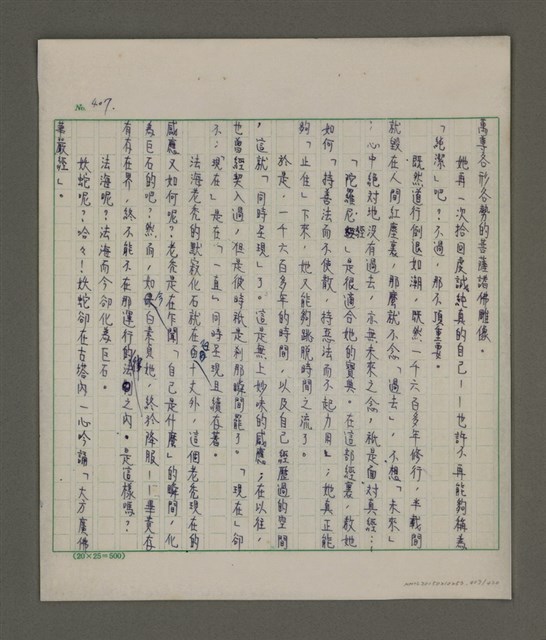 No. 407.
萬尊各形各勢的菩薩諸佛雕像。
她再一次拾回虔誠純真的自己——也許不再能夠稱爲
「純潔」吧?不過,那不頂重要。
既然道行倒退如潮,既然一千六百多年修行,半載間
就毀在人間紅塵裏,那麼就不念「過去」,不想「未來」
;心中絕對地沒有過去,亦無未來之念,祇是面對真經……
「陀羅尼經」是很適合她的寶典。在這部經裏,教她
如何「持善法而不使散,持惡法而不起力用」;她真正能
夠「止住」下來,她又能夠跳脫時間之流了。
於是,一千六百多年的時間,以及自己經歷過的空間
,這就「同時呈現」了。這是無上妙味的感應;在以往,
也曾經契入過,但是彼時祇是刹那瞬間罷了。「現在」卻
不;現在」是在「一直」同時呈現且續存著。
法海老禿的默殺化石就在百千丈外,這個老禿現在的
感應又如何呢?老禿是在乍聞「自己是什麼」的瞬間,化
爲巨石的吧?然而,如今白素貞她,終於降服——畢竟存
有存在界,終不能不在那運行的法則之內。是這樣嗎?
法海呢?法海而今卻化爲巨石。
妖蛇呢?哈々!妖蛇卻在古塔內一心吟誦「大方廣佛
華嚴經」。
(20×25=500)